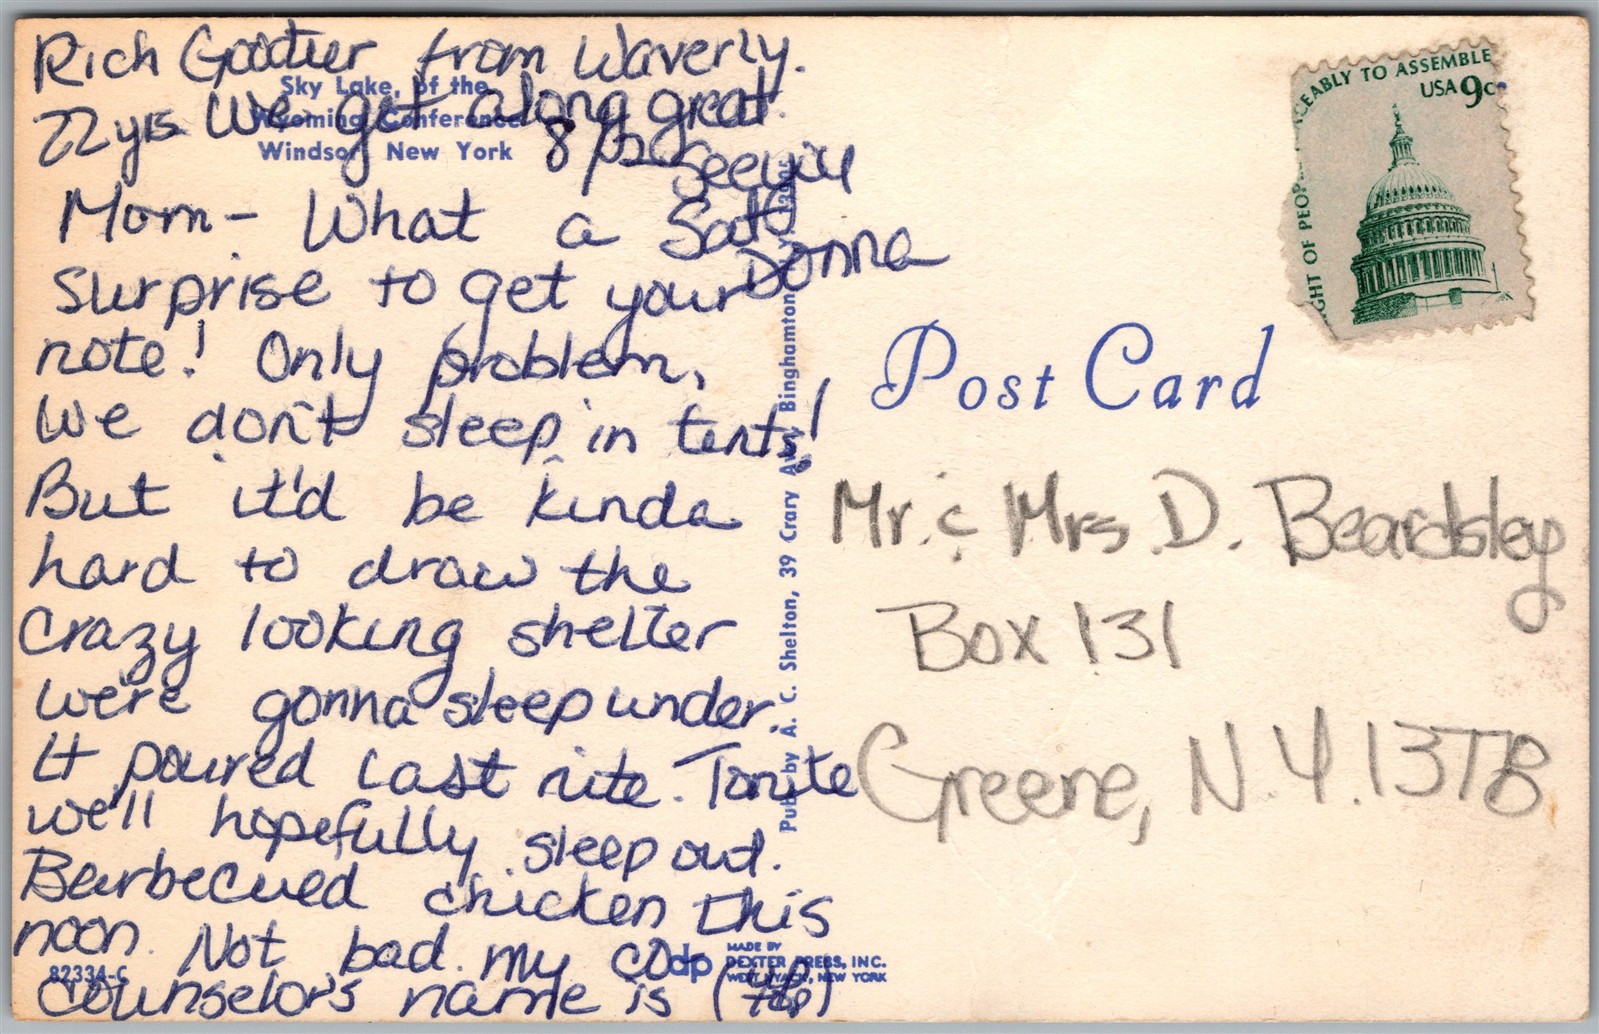 Rich Goodier from Waverly.
22 yrs We get along great.
8/22 See you
Sat
Donna
Mom- What a
surprise to get your
note! Only problem,
we don't sleep in tents!
But it'd be kinda
hard to draw the
crazy looking shelter
we're gonna sleep under.
It poured last nite. Tonite
we'll hopefully sleep out.
Barbecued chicken this
noon. Not bad. My co
counselor's name is (up top)
Sky Lake, of the
Wyoming Conference
Windsor, New York
Pub. by A. C. Shelton, 39 Crary Ave., Binghamton,
82334-C
dp
MADE BY
DEXTER PRESS, INC.
WEST NYACK, NEW YORK
Post Card
PEACEABLY TO ASSEMBLE
USA 9c
RIGHT OF PEOPLE
Mr. & Mrs. D. Beardsley
Box 131
Greene, N.Y. 13778